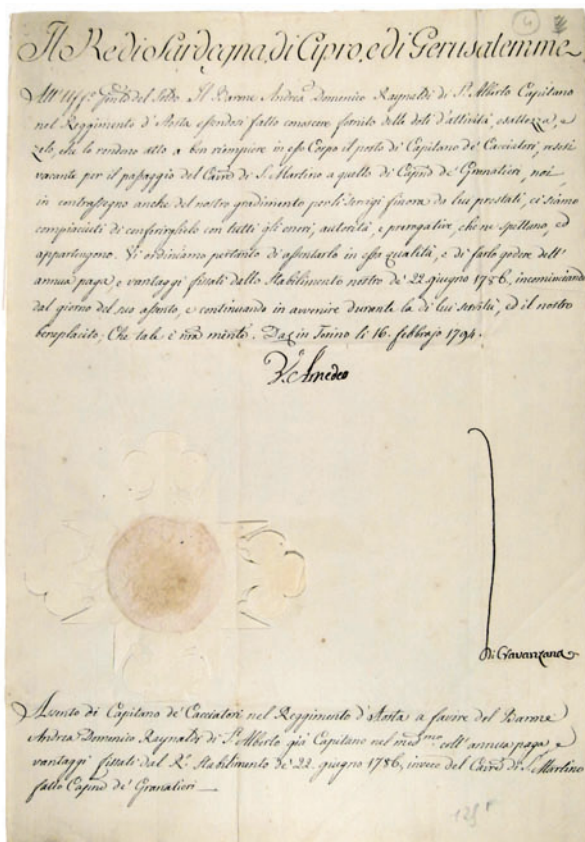 4
Il Re di Sardegna, di Cipro, e di Gerusalemme
All' Uff.o del Soldo. Il Barone Andrea Domenico Raynaldi di S.t Alberto Capitano
nel Reggimento d'Aosta essendosi fatto conoscere fornito delle doti d'attività, esattezza, e
zelo, che lo rendono atto a ben riempiere in esso Corpo il posto di Capitano de' Cacciatori, resosi
vacante per il passaggio del Cav.re di S. Martino a quello di Cap.no de' Granatieri, noi
in contrassegno anche del nostro gradimento per li servigi finora da lui prestati, ci siamo
compiaciuti di conferirglielo con tutti gli onori, autorità, e prerogative, che ne spettano, ed
appartengono. Vi ordiniamo pertanto di assentarlo in essa qualità, e di farlo godere dell'
annua paga, e vantaggi fissati dallo Stabilimento nostro de' 22. giugno 1786, incominciando
dal giorno del suo assento, e continuando in avvenire durante la di lui servitù, ed il nostro
beneplacito; Che tale è nra mente. Dat in Torino li 16. febbrajo 1794.
V. Amedeo
Di Cravanzana
Assento di Capitano de' Cacciatori nel Reggimento d'Aosta a favore del Barone
Andrea Domenico Raynaldi di S.t Alberto già Capitano nel med.mo coll' annua paga, e
vantaggi fissati dal R.o Stabilimento de' 22. giugno 1786, invece del Cav.re di S. Martino
fatto Cap.no de' Granatieri